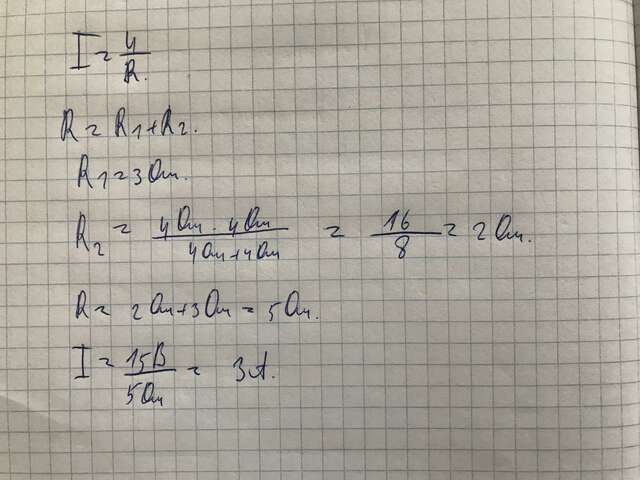 I = U/R.
R = R1+R2.
R1 = 3 Ом.
R2 = 4 Ом · 4 Ом / 4 Ом + 4 Ом = 16/8 = 2 Ом.
R = 2 Ом + 3 Ом = 5 Ом.
I = 15В/5 Ом = 3А.